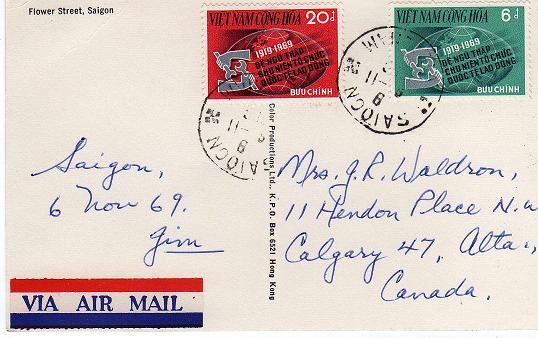 Flower Street, Saigon
VIỆT NAM CỘNG HÒA
20đ
1919-1969
ĐỆ NGŨ THẬP
CHU NIÊN TỔ CHỨC
QUỐC TẾ LAO ĐỘNG
BƯU CHÍNH
VIỆT NAM CỘNG HÒA
6đ
1919-1969
ĐỆ NGŨ THẬP
CHU NIÊN TỔ CHỨC
QUỐC TẾ LAO ĐỘNG
BƯU CHÍNH
SAIGON
11
SAIGON
11
Saigon,
6 Nov 69.
Jim
VIA AIR MAIL
Color Productions Ltd., K.P.O. Box 6521 Hong Kong
Mrs. J.R. Waldron,
11 Hendon Place N.W
Calgary 47, Alta.,
Canada.